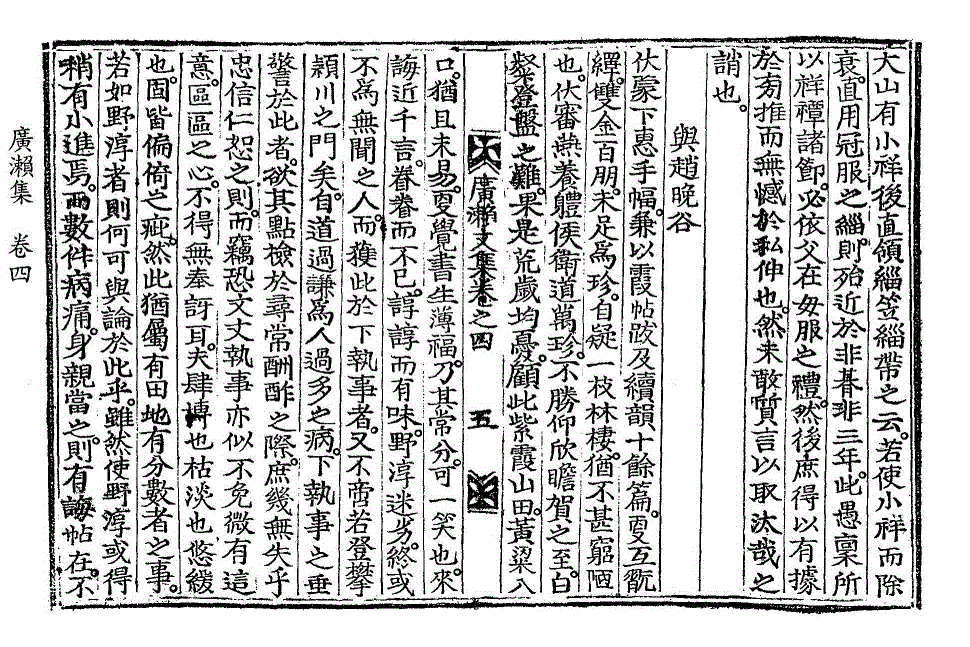 大山有小祥後直領緇笠緇帶之云。若使小祥而除
衰。直用冠服之緇。則殆近於非朞非三年。此愚稟所
以祥禫諸節。必依父在母服之禮。然後庶得以有據
於旁推而無憾於私伸也。然未敢質言以取汰哉之
誚也。
與趙晩谷
伏蒙下惠手幅。兼以霞帖跋及續韻十餘篇。更互翫
繹。雙金百朋。未足爲珍。自疑一枝林棲。猶不甚窮陋
也。伏審燕養軆候衛道萬珍。不勝仰欣瞻賀之至。白
粲登盤之難。果是荒歲均憂。顧此紫霞山田。黃粱入
廣瀨文集卷之四 五
口。猶且未易。更覺書生薄福。乃其常分。可一笑也。來
誨近千言。眷眷而不已。諄諄而有味。野淳迷劣。終或
不爲無聞之人。而獲此於下執事者。又不啻若登攀
穎川之門矣。自道過謙。爲人過多之病。下執事之垂
警於此者。欲其點檢於尋常酬酢之際。庶幾無失乎
忠信仁恕之則。而竊恐文丈執事亦似不免微有這
意。區區之心。不得無奉訝耳。夫肆博也枯淡也悠緩
也。固皆偏倚之疵。然此猶屬有田地有分數者之事。
若如野淳者則何可與論於此乎。雖然使野淳或得
稍有小進焉。兩數件病痛。身親當之。則有誨帖在。不
廣瀨集 卷四